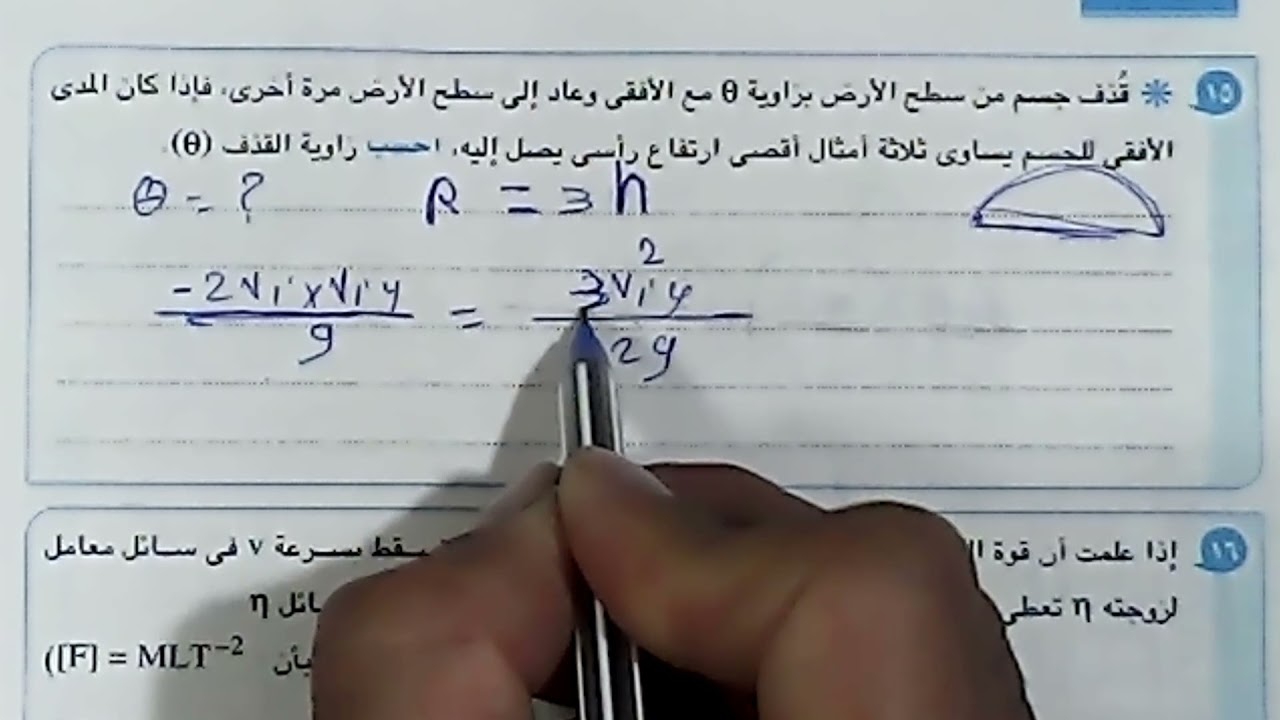 ١٥ * قُذف جسم من سطح الأرض بزاوية θ مع الأفقى وعاد إلى سطح الأرض مرة أخرى، فإذا كان المدى
الأفقى للجسم يساوى ثلاثة أمثال أقصى ارتفاع رأسى يصل إليه، احسب زاوية القذف (θ).
θ = ? R = 3h
-2Vix Viy / g = -3Viy² / 2g
١٦ إذا علمت أن قوة سقط بسرعة v فى سائل معامل
لزوجته η تعطى سائل η
([F] = MLT⁻² بأن